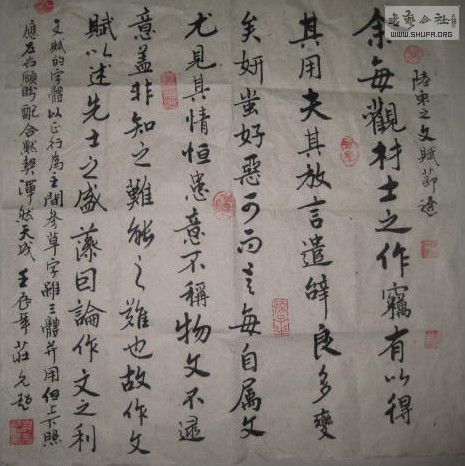 書藝公社
WWW.SHUFA.ORG
陸柬之文賦節選
余每觀材士之作竊有以得
其用夫其放言遣辭良多變
矣妍蚩好惡可而言每自属文
尤見其情恒患意不稱物文不逮
意蓋非知之難能之難也故作文
賦以述先士之盛藻因論作文之利
文賦的字體以正行為主間參草字雖三體并用但上下照
應左右顧盼配合默契渾然天成 壬辰年莊允超